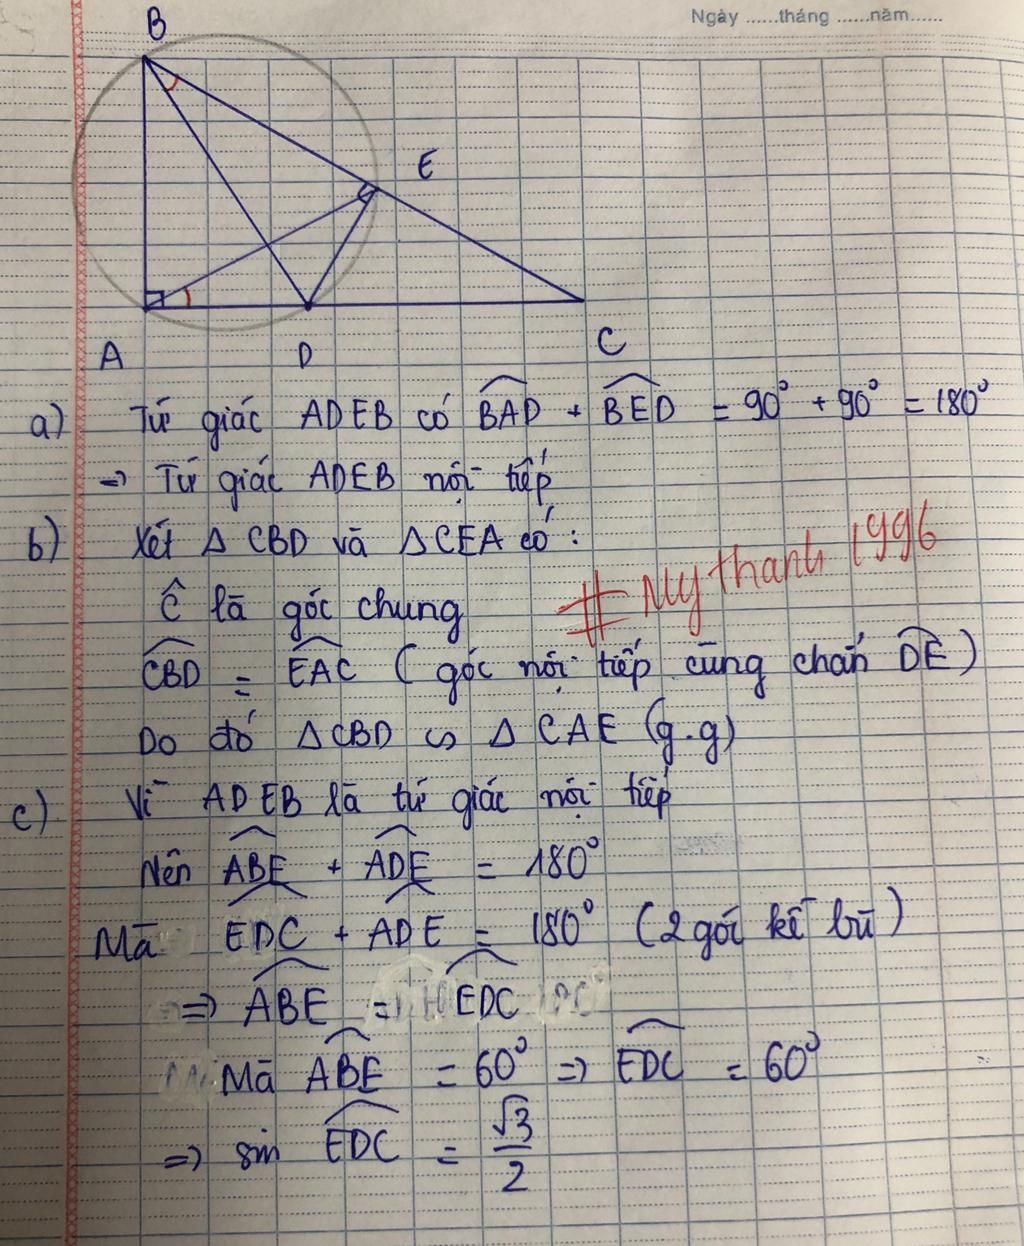 Ngày ......tháng ......năm......
B
E
A
D
C
a) Tứ giác ADEB có BAD + BED = 90° + 90° = 180°
=> Tứ giác ADEB nội tiếp
b) Xét Δ CBD và Δ CEA có :
Ĉ là góc chung
# Mythanh 1996
CBD = EAC ( góc nội tiếp cùng chắn DE )
Do đó Δ CBD ∽ Δ CAE (g.g)
c) Vì ADEB là tứ giác nội tiếp
Nên ABE + ADE = 180°
Mà EDC + ADE = 180° (2 góc kề bù)
=> ABE = EDC
Mà ABE = 60° => EDC = 60°
=> sin EDC = √3/2